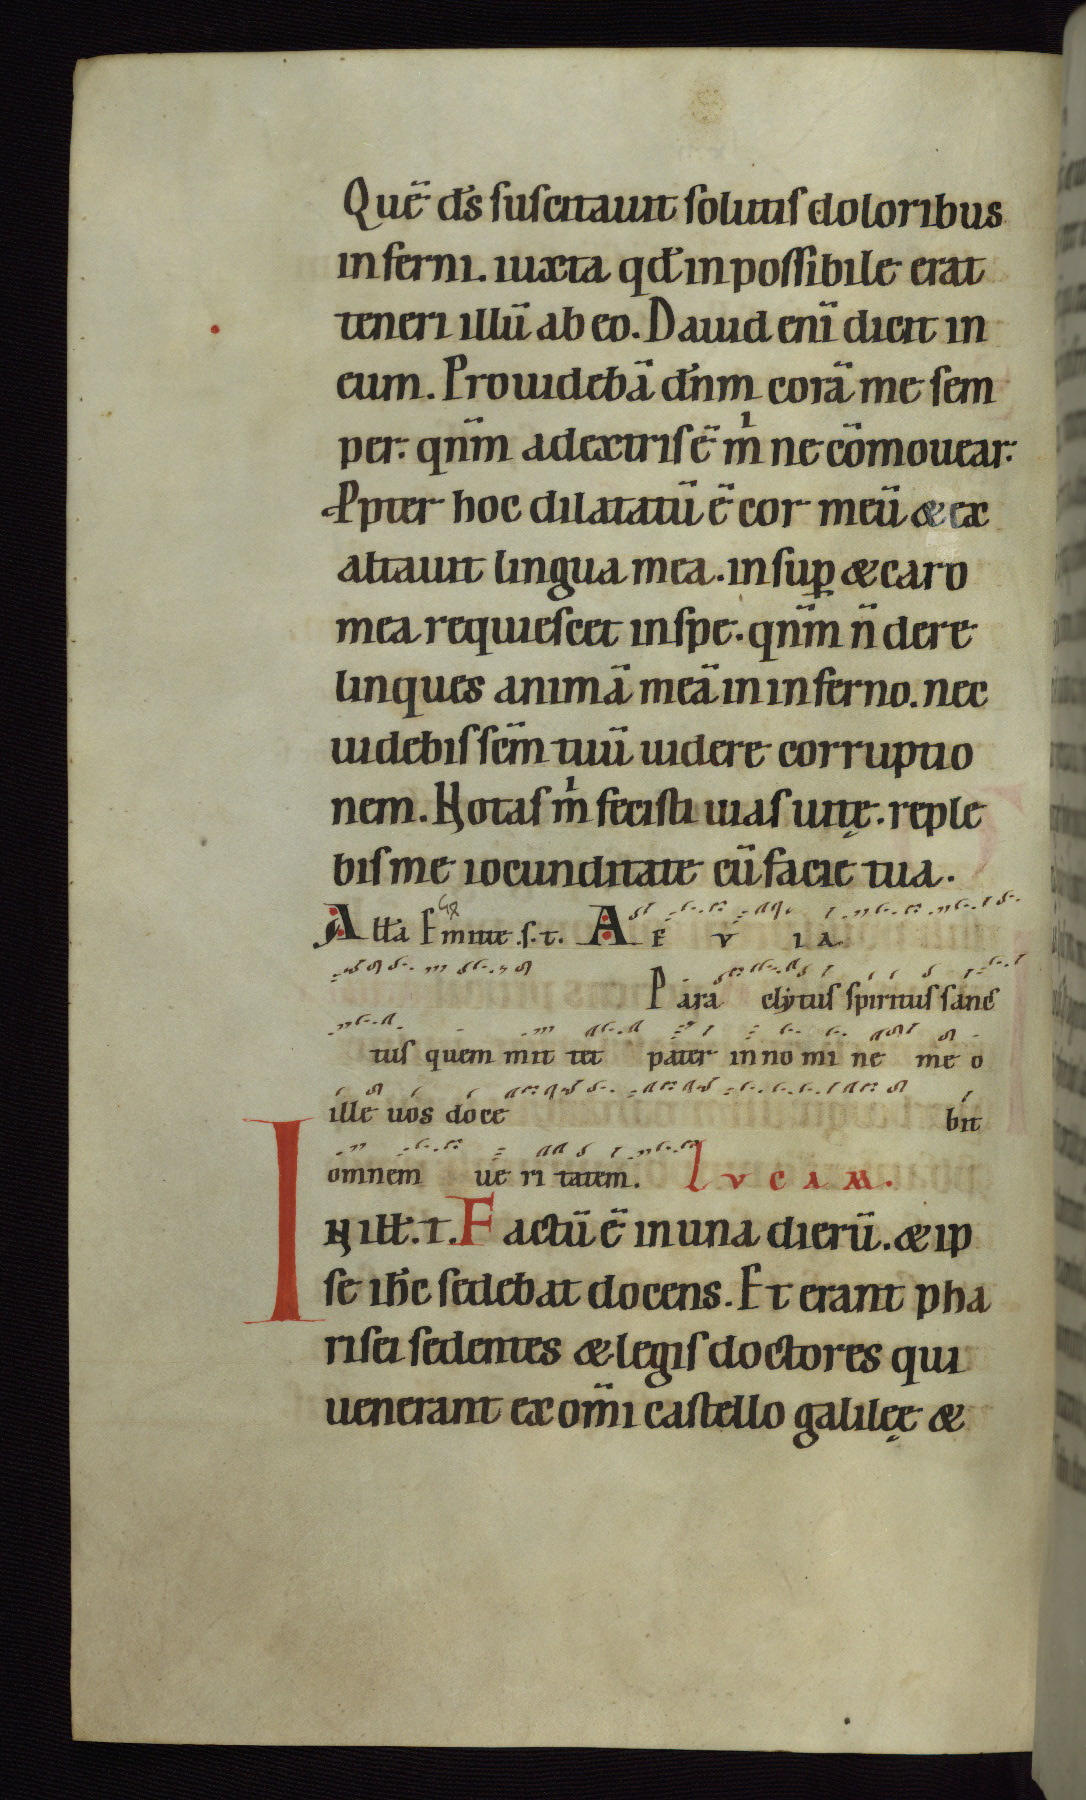 Quē dſ̄ ſuſcitauit ſolutiſ doloribus
inferni. iuxta qđ inpoſſibile erat
teneri illū ab eo. Dauid enī dicit in
eum. Prouidebā dn̄m corā me ſem
per. qn̄m adextriſ ē m̄ ne cōmouear.
Ppter hoc dilatatū ē cor meū & ex
altauit lingua mea. inſuꝑ & caro
mea requieſcet in ſpe. qn̄m n̄ dere
linques animā meā in inferno. nec
uidebiſ ſcm̄ tuū uidere corruptio
nem. Notaſ m̄ feciſti uiaſ uitę. reple
biſ me iocunditate cū facie tua.
Alła Emitte .ſ. t. A E V I A
Para clytuſ ſpirituſ ſanc
tuſ quem mit tet pater in no mi ne me o
ille uos doce bit
omnem ue ri tatem. LVCAM.
IN iłł. T. Factū ē in una dierū. & ip
ſe ih̄c ſedebat docens. Et erant pha
riſei ſedentes & legiſ doctores qui
uenerant ex om̄i caſtello galileę &